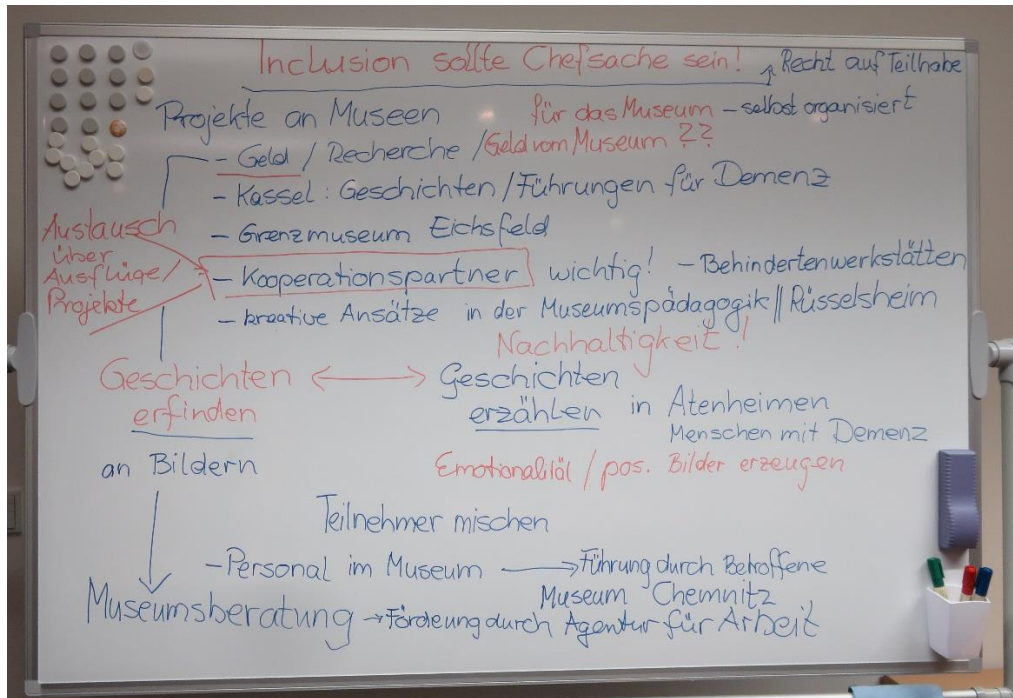 Inclusion sollte Chefsache sein!
Recht auf Teilhabe
Projekte an Museen
für das Museum – selbst organisiert
- Geld / Recherche / Geld vom Museum ??
- Kassel: Geschichten / Führungen für Demenz
- Grenzmuseum Eichsfeld
Austausch
über
Ausflüge/
Projekte
- Kooperationspartner wichtig! - Behindertenwerkstätten
- kreative Ansätze in der Museumspädagogik || Rüsselsheim
Nachhaltigkeit!
Geschichten
erfinden
an Bildern
Geschichten
erzählen in Atenheimen
Menschen mit Demenz
Emotionalität / pos. Bilder erzeugen
Teilnehmer mischen
- Personal im Museum → Führung durch Betroffene
Museum Chemnitz
Museumsberatung → Förderung durch Agentur für Arbeit